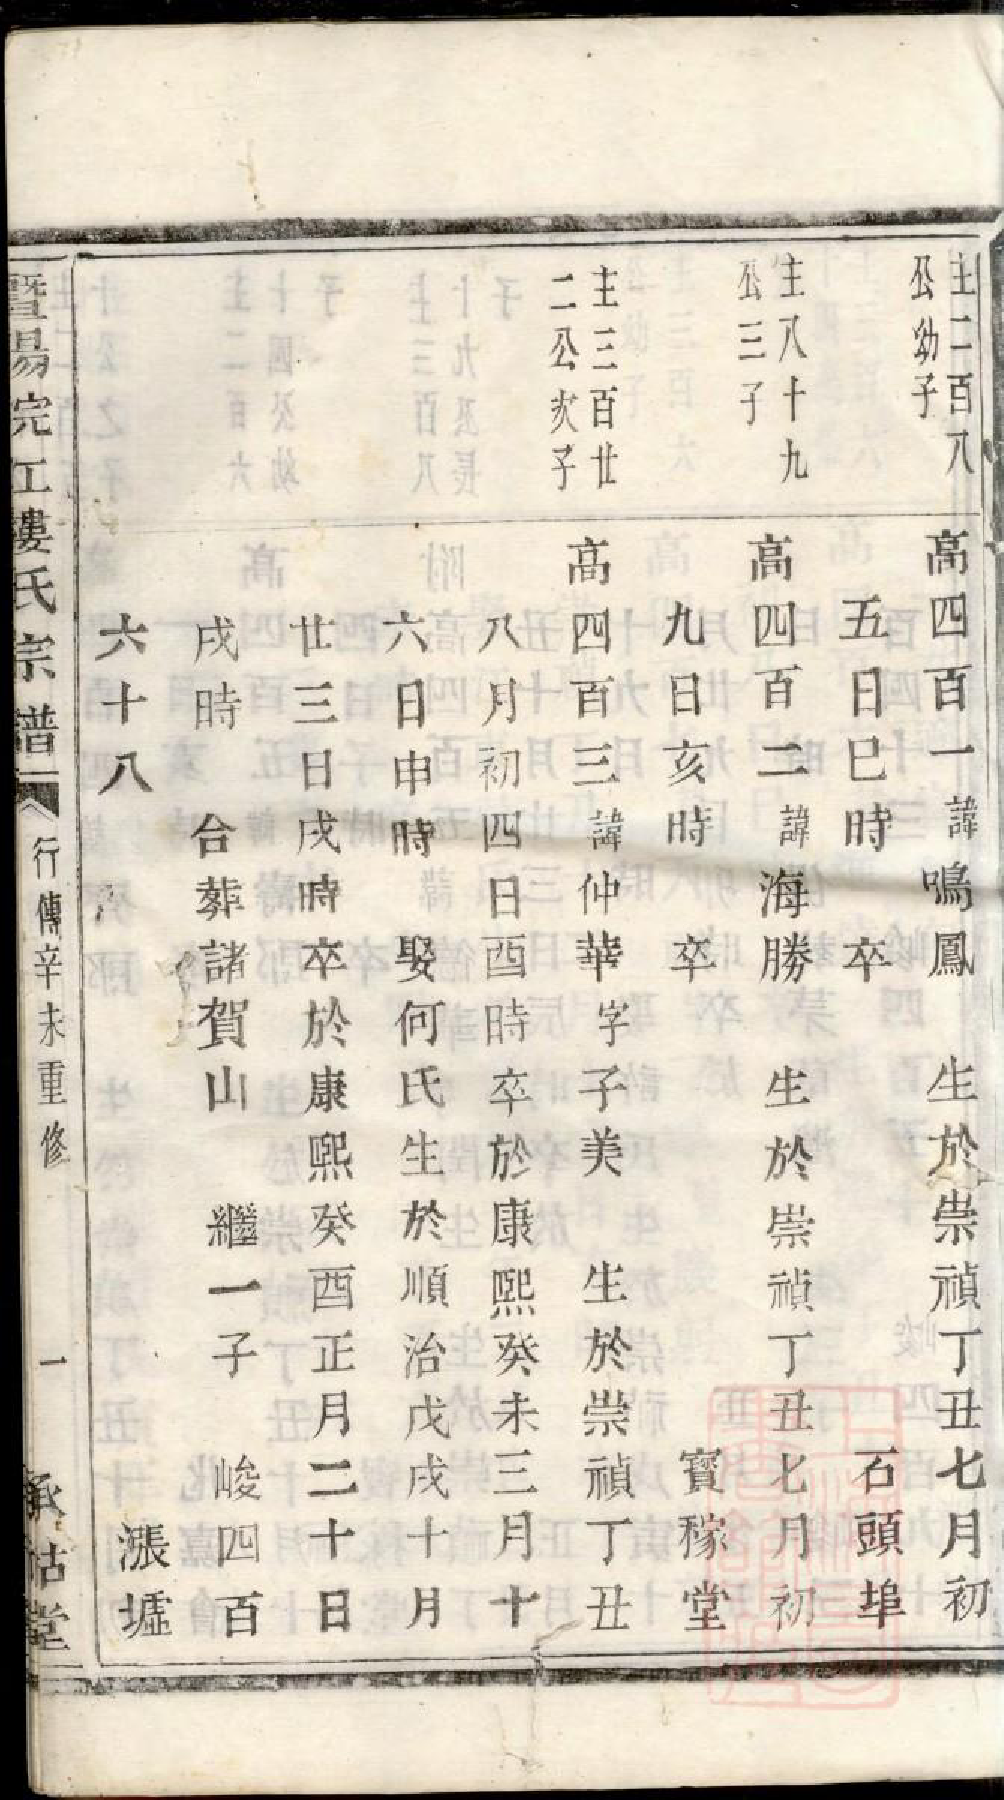 主二百八
公幼子
高四百一諱鳴鳳 生於崇禎丁丑七月初
五日巳時 卒 石頭埠
主八十九
公三子
高四百二諱海勝 生於崇禎丁丑七月初
九日亥時 卒 寶稼堂
主三百廿
二公次子
高四百三諱仲華字子美 生於崇禎丁丑
八月初四日酉時卒於康熙癸未三月十
六日申時 娶何氏生於順治戊戌十月
廿三日戌時卒於康熙癸酉正月二十日
戌時 合葬諸賀山 繼一子 峻四百
六十八 漲墟
暨陽浣江婁氏宗譜 行傳辛未重修 一 承祜堂